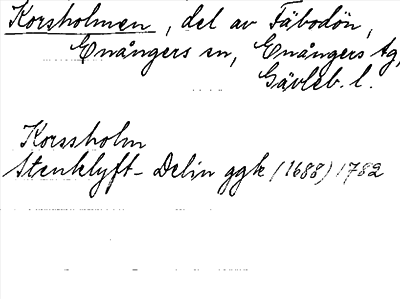 Korsholmen, del av Fäbodön,
Enångers sn, Enångers tg,
Gävleb. l.
Korssholm
Stenklyft- Delin ggk (1688) 1782